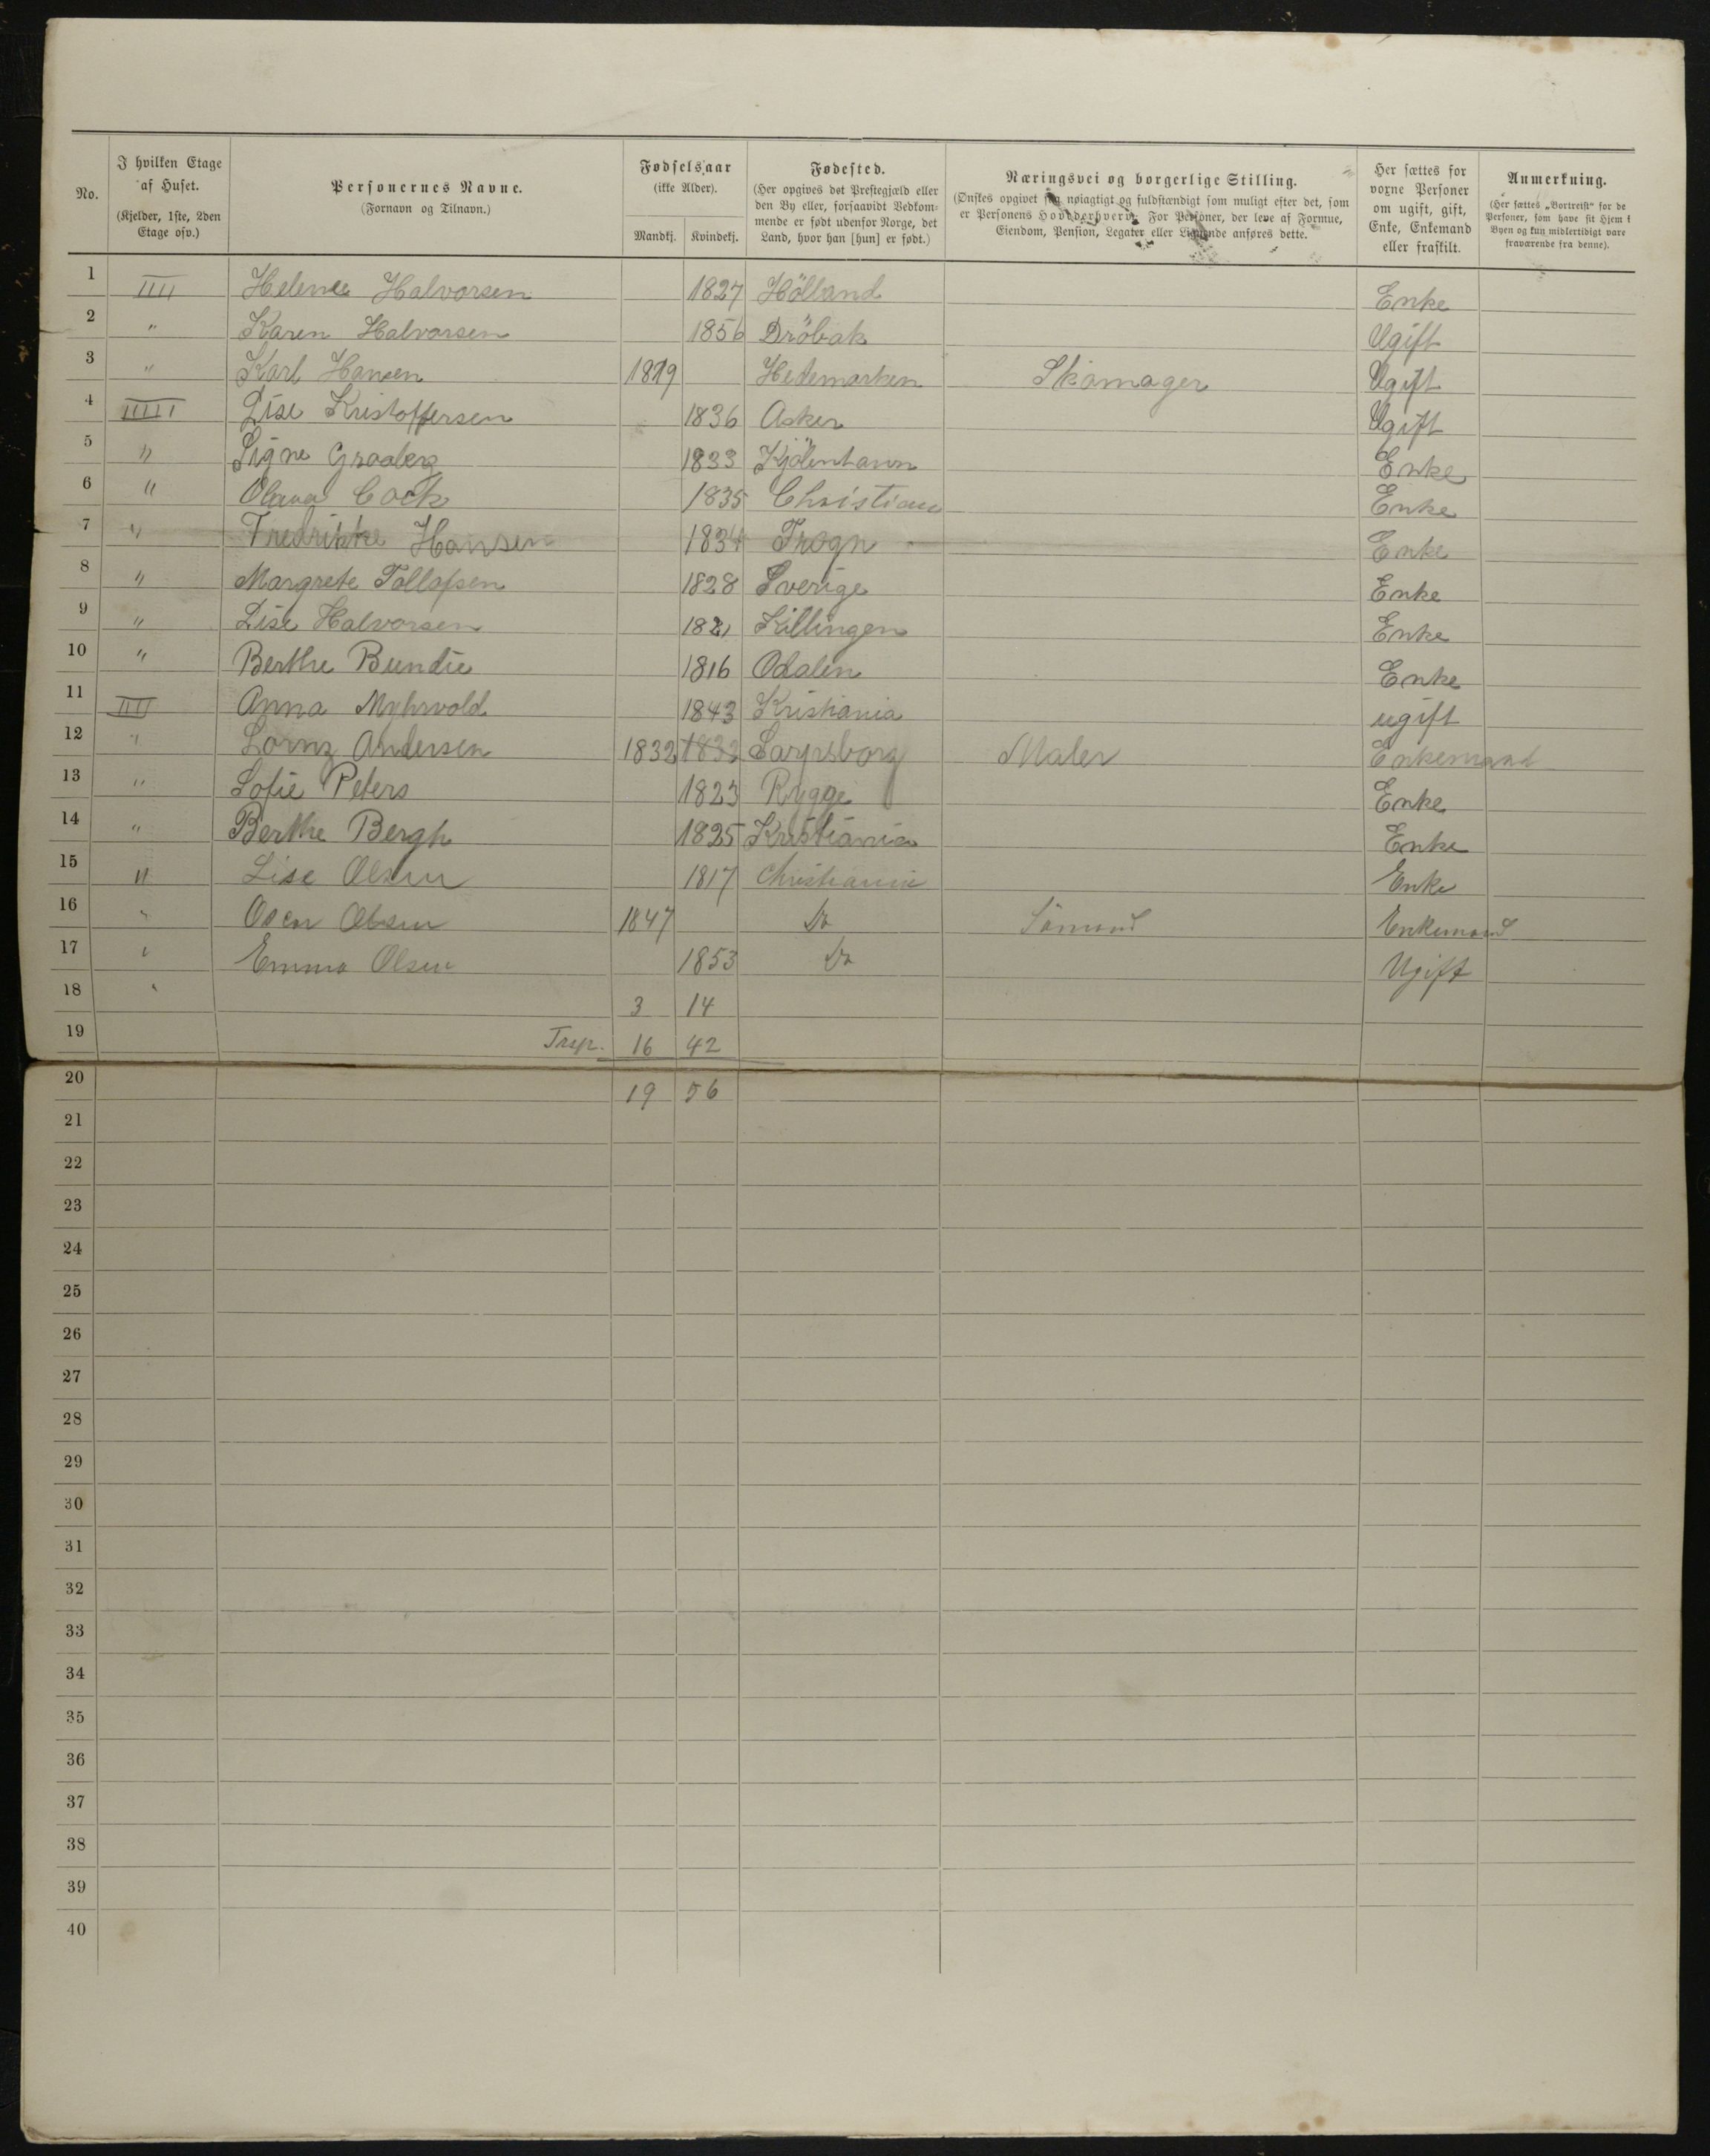 No. | I hvilken Etage af Huset. (Kjelder, 1ste, 2den Etage osv.) | Personernes Navne. (Fornavn og Tilnavn.) | Fødselsaar (ikke Alder). Mandkj. | Kvindekj. | Fødested. (Her opgives det Præstegjæld eller den By eller, forsaavidt Vedkommende er født udenfor Norge, det Land, hvor han [hun] er født.) | Næringsvei og borgerlige Stilling. (Ønskes opgivet saa nøiagtigt og fuldstændigt som muligt efter det, som er Personens Hovederhverv. For Personer, der leve af Formue, Eiendom, Pension, Legater eller Lignende anføres dette. | Her sættes for voxne Personer om ugift, gift, Enke, Enkemand eller fraskilt. | Anmerkning. (Her sættes „Bortreist“ for de Personer, som have sit Hjem i Byen og kun midlertidigt vare fraværende fra denne).
1 IIII Helene Halvorsen 1827 Hölland Enke
2 " Karen Halvorsen 1856 Dröbak Ugift
3 " Karl Hansen 1819 Hedemarken Skomager Ugift
4 IIIII Lise Kristoffersen 1836 Asker Ugift
5 " Signe Graaberg 1833 Kjöbenhavn Enke
6 " Olava Cock 1835 Christian Enke
7 " Fredrikke Hansen 1834 Frogn Enke
8 " Margrete Tollefsen 1828 Sverige Enke
9 " Lise Halvorsen 1821 Killingen Enke
10 " Berthe Bundie 1816 Odalen Enke
11 III Anna Myhrvold 1843 Kristiania ugift
12 " Lornz Andersen 1832 1832 Sarpsborg Maler Enkemand
13 " Sofie Peters 1823 Rygge Enke
14 " Berthe Bergh 1825 Kristiania Enke
15 " Lise Olsen 1817 Christiania Enke
16 " Olsen 1847 Do Sömand Enkemand
17 " Emma Olsen 1853 Do Ugift
18 " 3 14
19 Trsp. 16 42
20 19 56
21
22
23
24
25
26
27
28
29
30
31
32
33
34
35
36
37
38
39
40